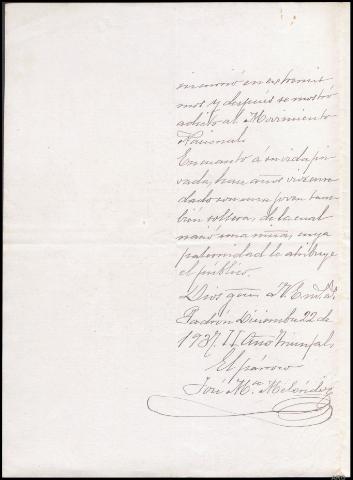 incurrió en extremis
mos y después se mostró
adicto al Movimiento
Nacional.
En cuanto á su vida pri
vada, hace años vive enre
dado con una joven tam
bién soltera, de la cual
nació una niña, cuya
paternidad le atribuye
el público.
Dios gue. a V. m. a.
Padrón Diciembre 22 de
1937. II Año Triunfal.
El párroco
José Mª Meléndez